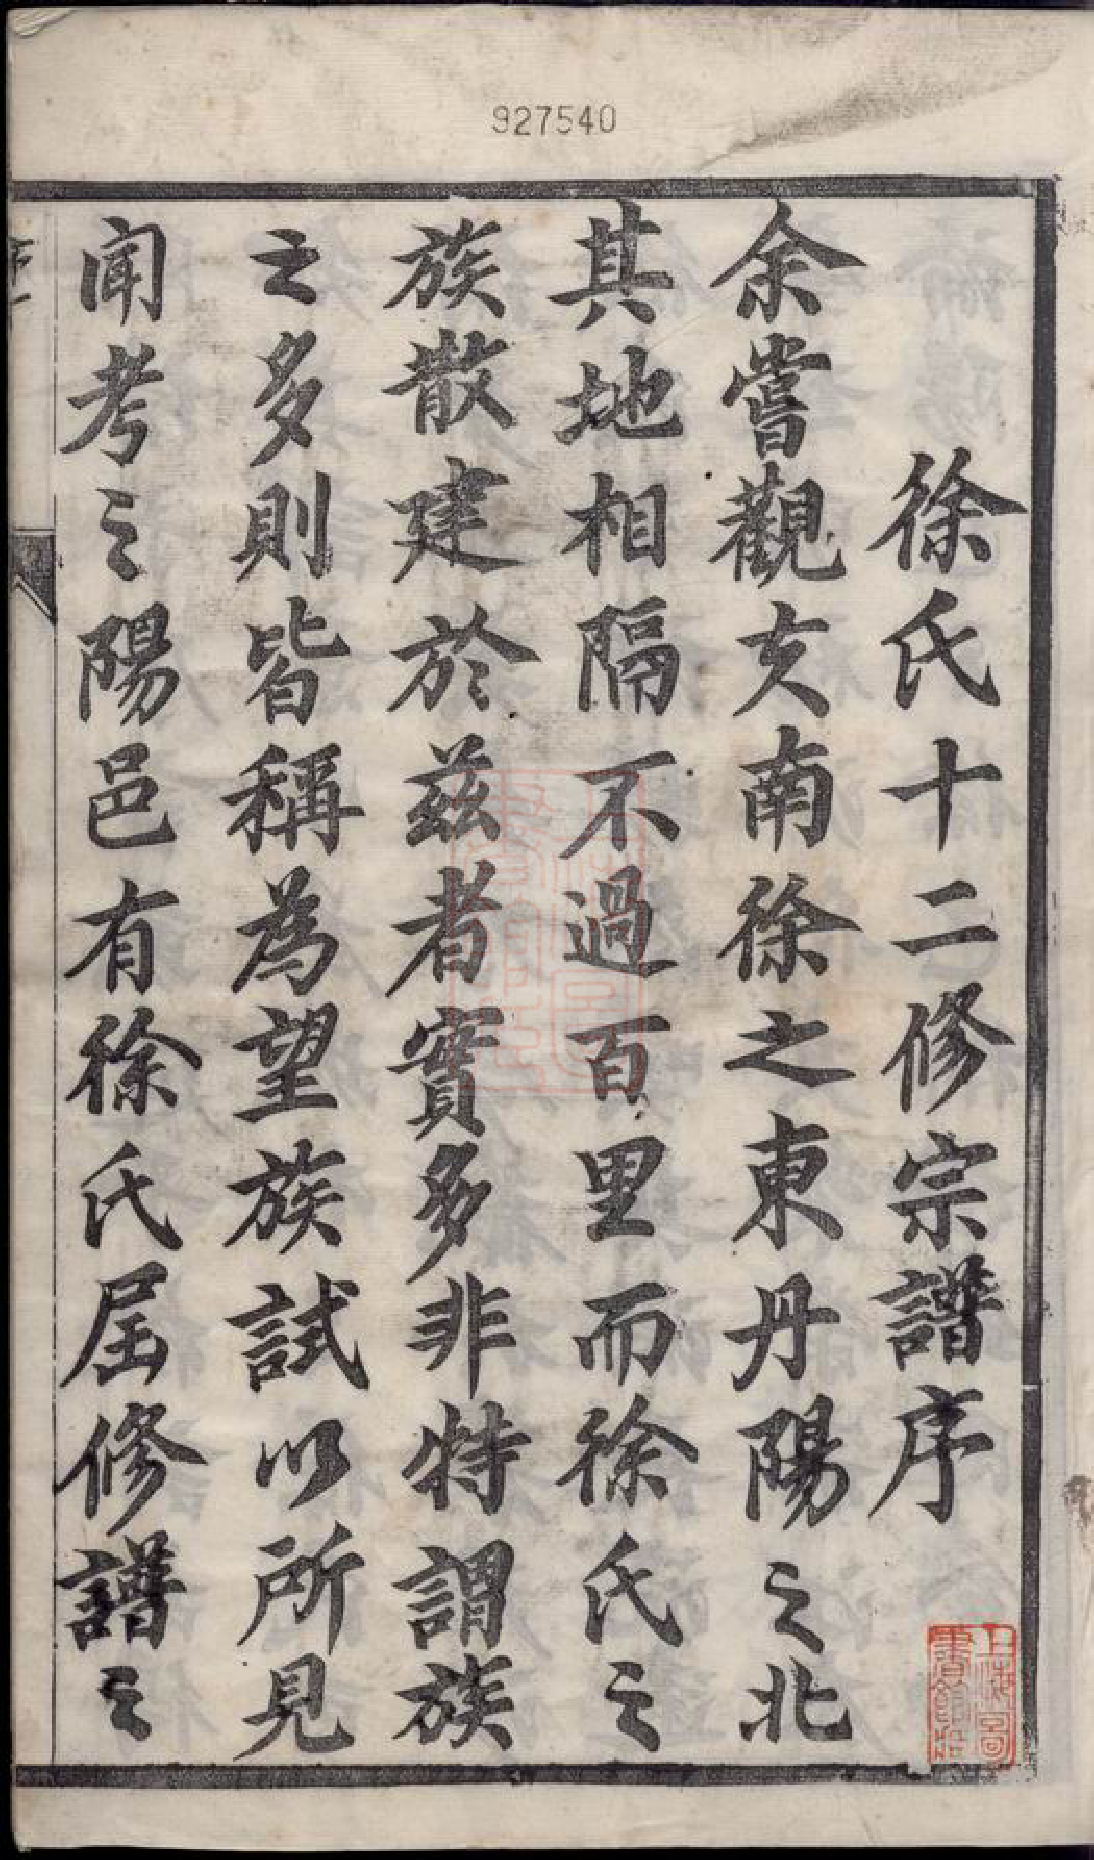 927540
徐氏十二修宗譜序
余嘗觀夫南徐之東丹陽之北
其地相隔不過百里而徐氏之
族散建於兹者實多非特謂族
之多則皆稱為望族試以所見
聞考之陽邑有徐氏屆修譜之
上海圖書館藏